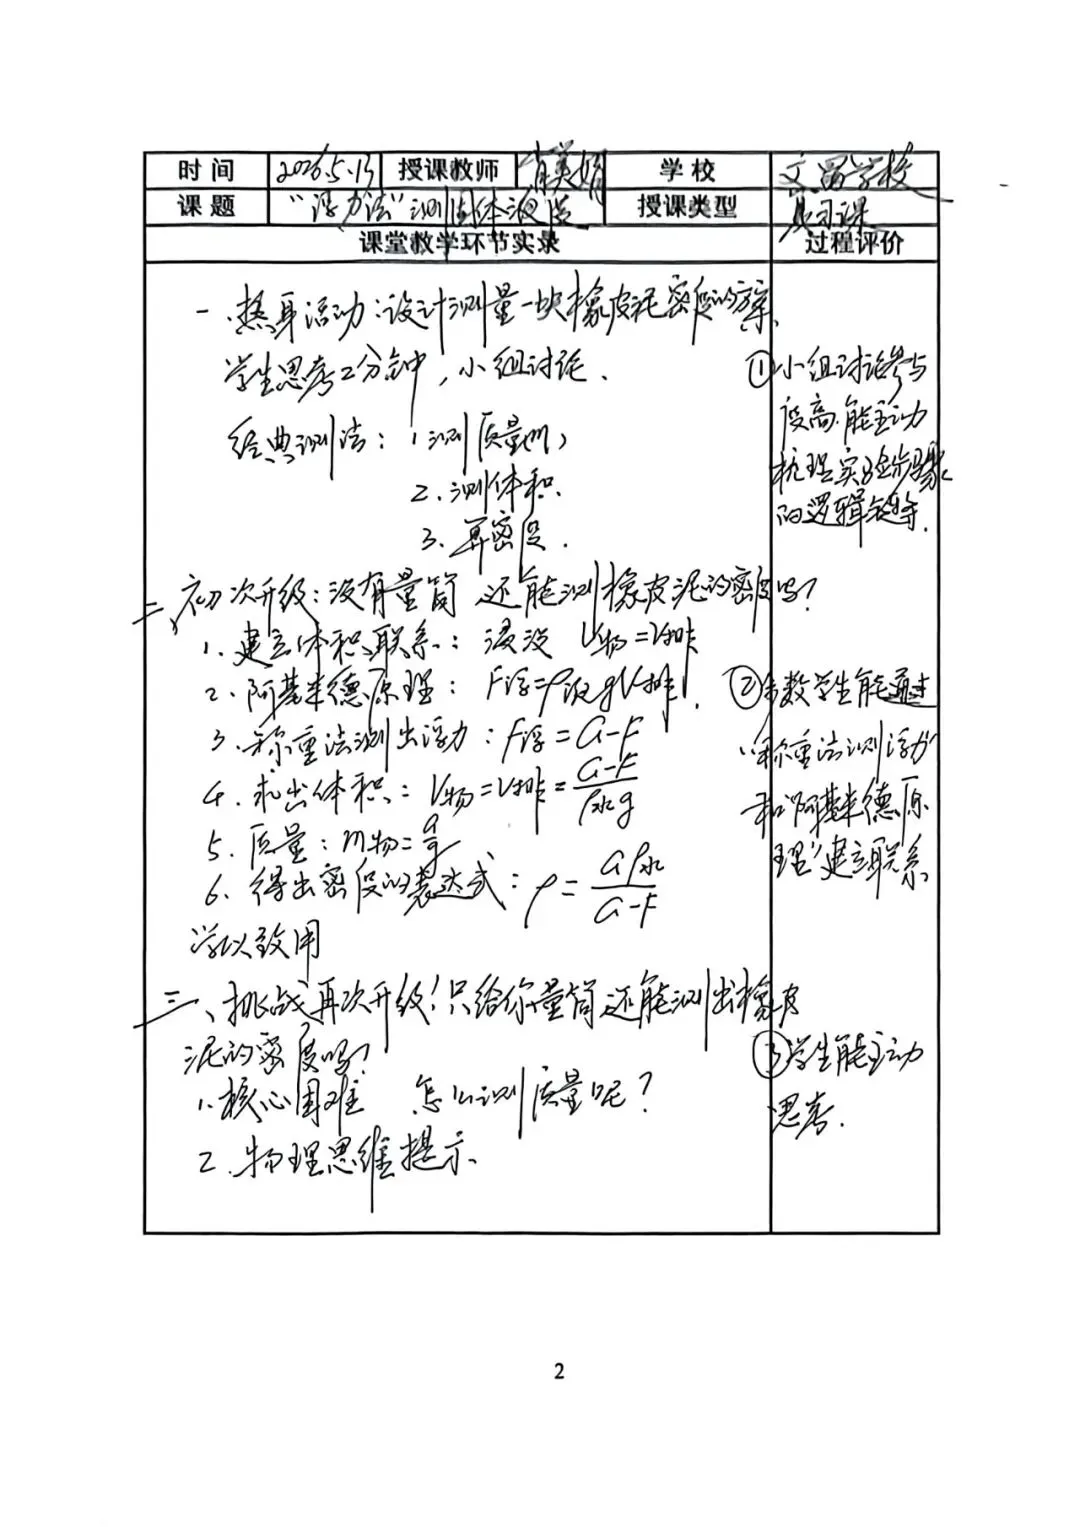 时间 2026.5.13 授课教师 肖美娟 学校 文昌学校
课题 "浮力法"测固体密度 授课类型 复习课
课堂教学环节实录 过程评价
一.热身活动:设计测量一块橡皮泥密度的方案
学生思考2分钟,小组讨论.
①小组讨论参与
度高.能主动
梳理实验步骤
的逻辑链等.
经典测法: 1测质量(m)
2.测体积.
3.算密度.
二、初次升级:没有量筒 还能测橡皮泥的密度吗?
1.建立体积联系: 浸没 V物=V排
2.阿基米德原理: F浮=ρ液gV排.
3.称重法测出浮力:F浮=G-F
4.求出体积:V物=V排=(G-F)/(ρ水g)
5.质量:m物=G/g
6.得出密度的表达式: ρ=Gρ水/(G-F)
②多数学生能通过
"称重法测浮力"
和"阿基米德原
理"建立联系
学以致用
三、挑战再次升级!只给你量筒还能测出橡皮
泥的密度吗?
1.核心困难 怎么测质量呢?
2.物理思维提示
③学生能主动
思考.
2